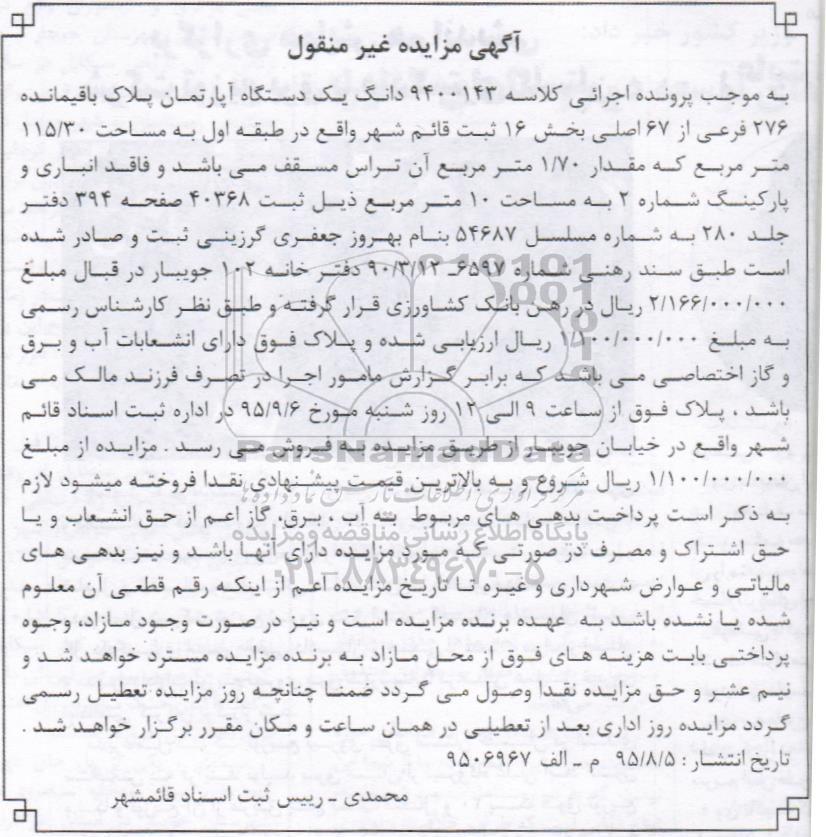 آگهی مزایده غیر منقول
به موجب پرونده اجرائی کلاسه ۹۴۰۰۱۴۳ دانگ یک دستگاه آپارتمان پلاک باقیمانده
۲۷۶ فرعی از ۶۷ اصلی بخش ۱۶ ثبت قائم شهر واقع در طبقه اول به مساحت ۱۱۵/۳۰
متر مربع که مقدار ۱/۷۰ متر مربع آن تراس مسقف می باشد و فاقد انباری و
پارکینگ شماره ۲ به مساحت ۱۰ متر مربع ذیل ثبت ۴۰۳۶۸ صفحه ۳۹۴ دفتر
جلد ۲۸۰ به شماره مسلسل ۵۴۶۸۷ بنام بهروز جعفری گرزینی ثبت و صادر شده
است طبق سند رهنی شماره ۶۵۹۷ـ ۹۰/۳/۱۲ دفتر خانه ۱۰۲ جویبار در قبال مبلغ
۲/۱۶۶/۰۰۰/۰۰۰ ریال در رهن بانک کشاورزی قرار گرفته و طبق نظر کارشناس رسمی
به مبلغ ۱/۱۰۰/۰۰۰/۰۰۰ ریال ارزیابی شده و پلاک فوق دارای انشعابات آب و برق
و گاز اختصاصی می باشد که برابر گزارش مامور اجرا در تصرف فرزند مالک می
باشد ، پلاک فوق از ساعت ۹ الی ۱۲ روز شنبه مورخ ۹۵/۹/۶ در اداره ثبت اسناد قائم
شهر واقع در خیابان جویبار از طریق مزایده به فروش می رسد . مزایده از مبلغ
۱/۱۰۰/۰۰۰/۰۰۰ ریال شروع و به بالاترین قیمت پیشنهادی نقدا فروخته میشود لازم
به ذکر است پرداخت بدهی های مربوط به آب ، برق، گاز اعم از حق انشعاب و یا
حق اشتراک و مصرف در صورتی که مورد مزایده دارای آنها باشد و نیز بدهی های
مالیاتی و عوارض شهرداری و غیره تا تاریخ مزایده اعم از اینکه رقم قطعی آن معلوم
شده یا نشده باشد به عهده برنده مزایده است و نیز در صورت وجود مازاد، وجوه
پرداختی بابت هزینه های فوق از محل مازاد به برنده مزایده مسترد خواهد شد و
نیم عشر و حق مزایده نقدا وصول می گردد ضمنا چنانچه روز مزایده تعطیل رسمی
گردد مزایده روز اداری بعد از تعطیلی در همان ساعت و مکان مقرر برگزار خواهد شد .
تاریخ انتشار : ۹۵/۸/۵ م ـ الف ۹۵۰۶۹۶۷
محمدی ـ رییس ثبت اسناد قائمشهر
ParsNamadData
مرکز فرآوری اطلاعات پارس نماد داده ها
پایگاه اطلاع رسانی مناقصه و مزایده
۰۲۱-۸۸۳۴۹۶۷۰-۵